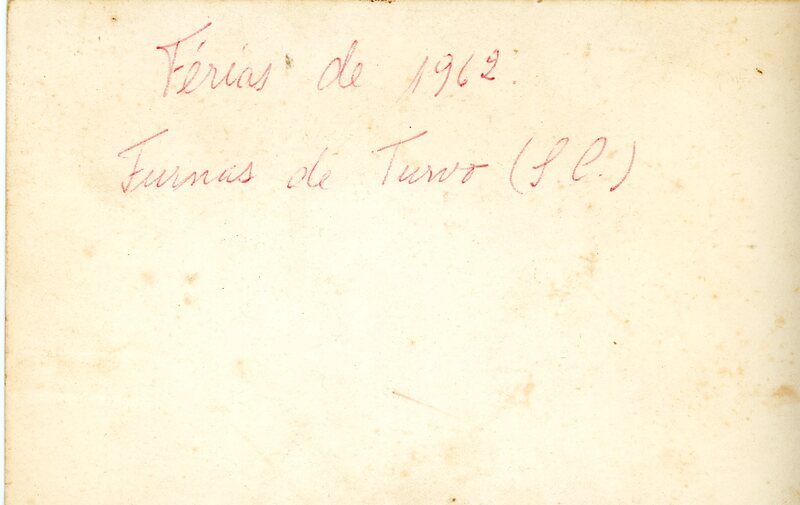 Férias de 1962.
Furnas de Turvo (S C.)